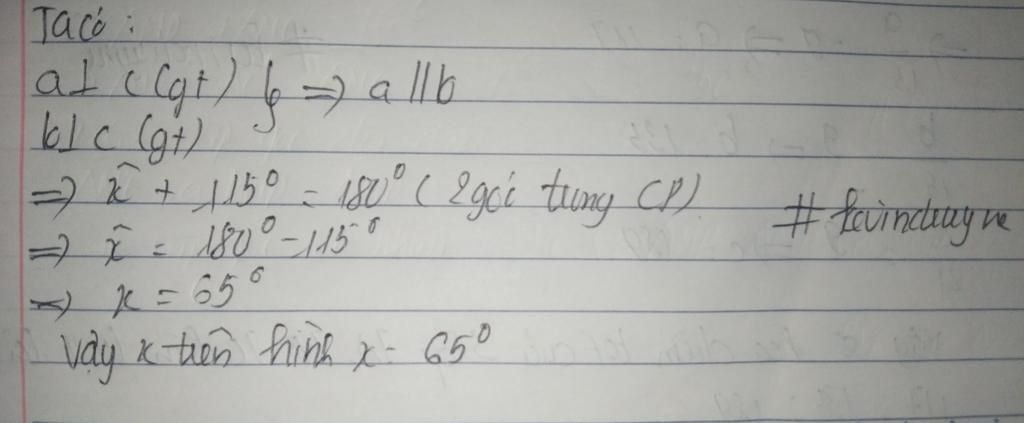 Ta có :
a ⊥ c (gt) } => a // b
b ⊥ c (gt)
=> x̂ + 115° = 180° ( 2 gói tung CP)
=> x̂ = 180° - 115°
=> x = 65°
Vậy x trên hình x = 65°